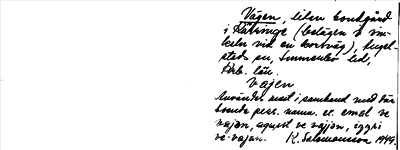 Vägen, liten bondgård
i Kätringe (belägen i vin-
keln vid en kortväg), Ingel-
stads sn, Sunnerbo hd,
Krb. län.
vajen
Användes mest i samband med där
boende pers. namn. ex. emal ve
vajən, agust ve vajjən, iggri
ve vajən. K. Salomonsson 1949.